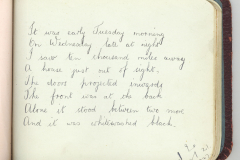 It was early Tuesday morning
On Wednesday late at night
I saw ten thousand miles away
A house just out of sight,
The doors projected inwards
The front was at the back
Alone it stood between two more
And it was whitewashed black.